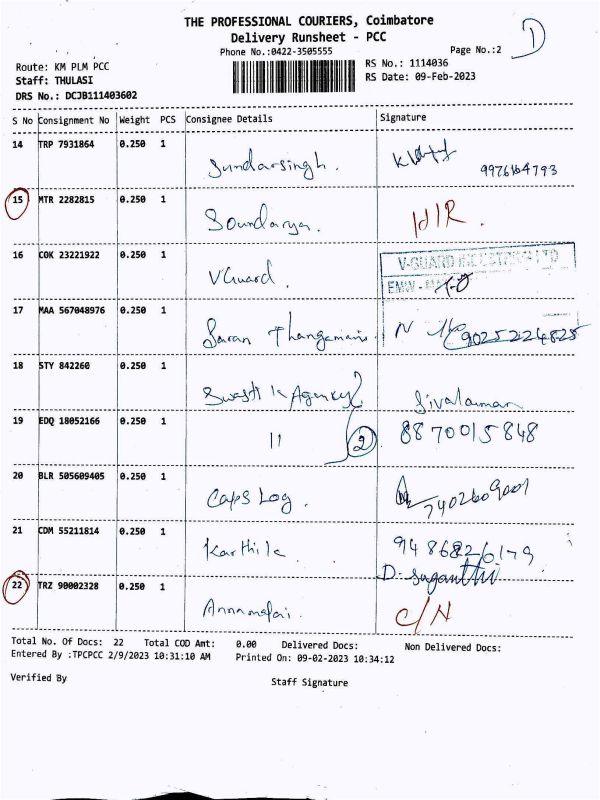 THE PROFESSIONAL COURIERS, Coimbatore
Delivery Runsheet - PCC
Phone No.:0422-3505555
Page No.:2
D
Route: KM PLM PCC
RS No.: 1114036
Staff: THULASI
RS Date: 09-Feb-2023
DRS No.: DCJB111403602
S No Consignment No Weight PCS Consignee Details Signature
14 TRP 7931864 0.250 1 Sundarsingh. 9976164793
15 MTR 2282815 0.250 1 Soundarya.
16 COK 23221922 0.250 1 VGuard. V-GUARD LTD
17 MAA 567048976 0.250 1 Saran Thangamani N 9025224825
18 STY 842260 0.250 1 Swastik Agency Sivalaman
19 EDQ 18052166 0.250 1 11 2 8870015848
20 BLR 505609405 0.250 1 Caps Log. 7402609001
21 CDM 55211814 0.250 1 Karthik 9486826179
D. Suganthi
22 TRZ 90002328 0.250 1 Annamalai. C/N
Total No. Of Docs: 22 Total COD Amt: 0.00 Delivered Docs: Non Delivered Docs:
Entered By :TPCPCC 2/9/2023 10:31:10 AM Printed On: 09-02-2023 10:34:12
Verified By
Staff Signature